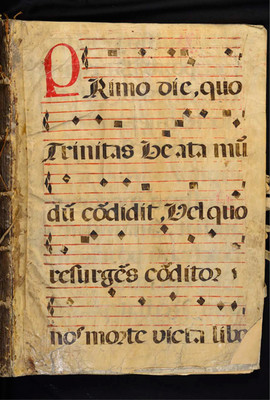 PRimo die, quo
Trinitas beata mū
dū cōdidit, Vel quo
resurgēs cōditor
nos morte victa libe